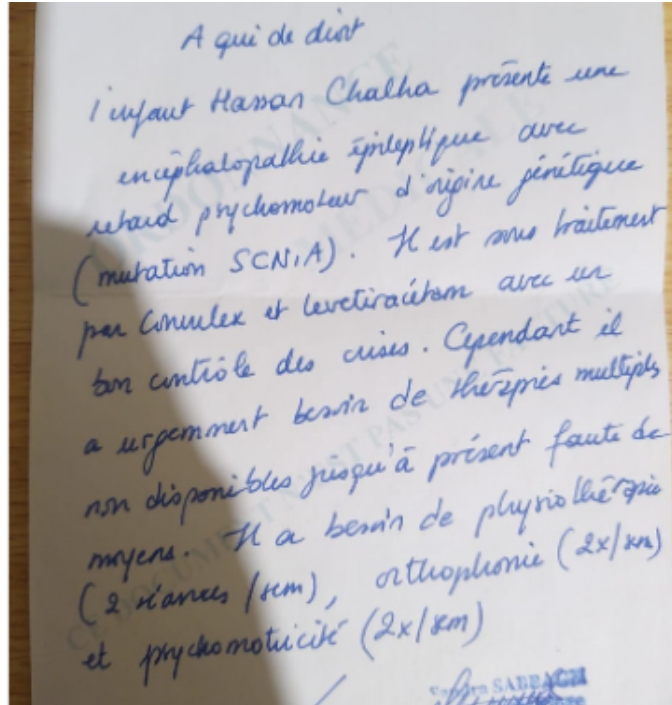 A qui de droit
l'enfant Hassan Chalha présente une
encéphalopathie épileptique avec
retard psychomoteur d'origine génétique
(mutation SCN1A). Il est sous traitement
par Convulex et levetiracétam avec un
bon contrôle des crises. Cependant il
a urgemment besoin de thérapies multiples
non disponibles jusqu'à présent faute de
moyens. Il a besoin de physiothérapie
(2 séances /sem), orthophonie (2x/sem)
et psychomotricité (2x/sem)
SABBAGH
ORDONNANCE
MEDICALE
CE DOCUMENT N'EST PAS UNE FACTURE